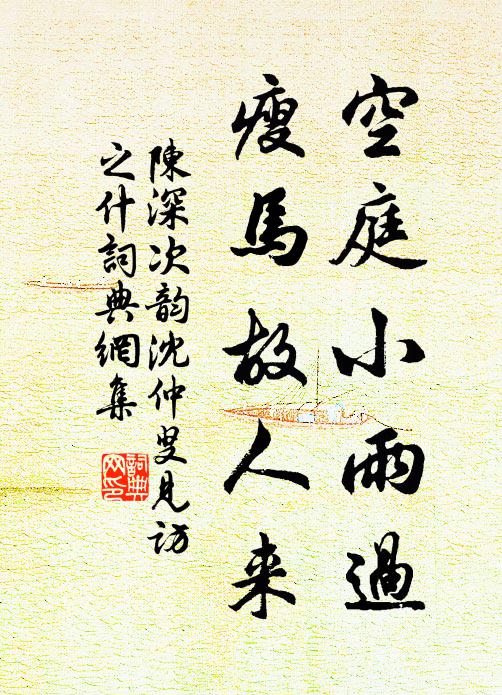 空庭小雨過
瘦馬故人来
陳深次韵沈仲叟見訪
之什詞典網集
詞典網印